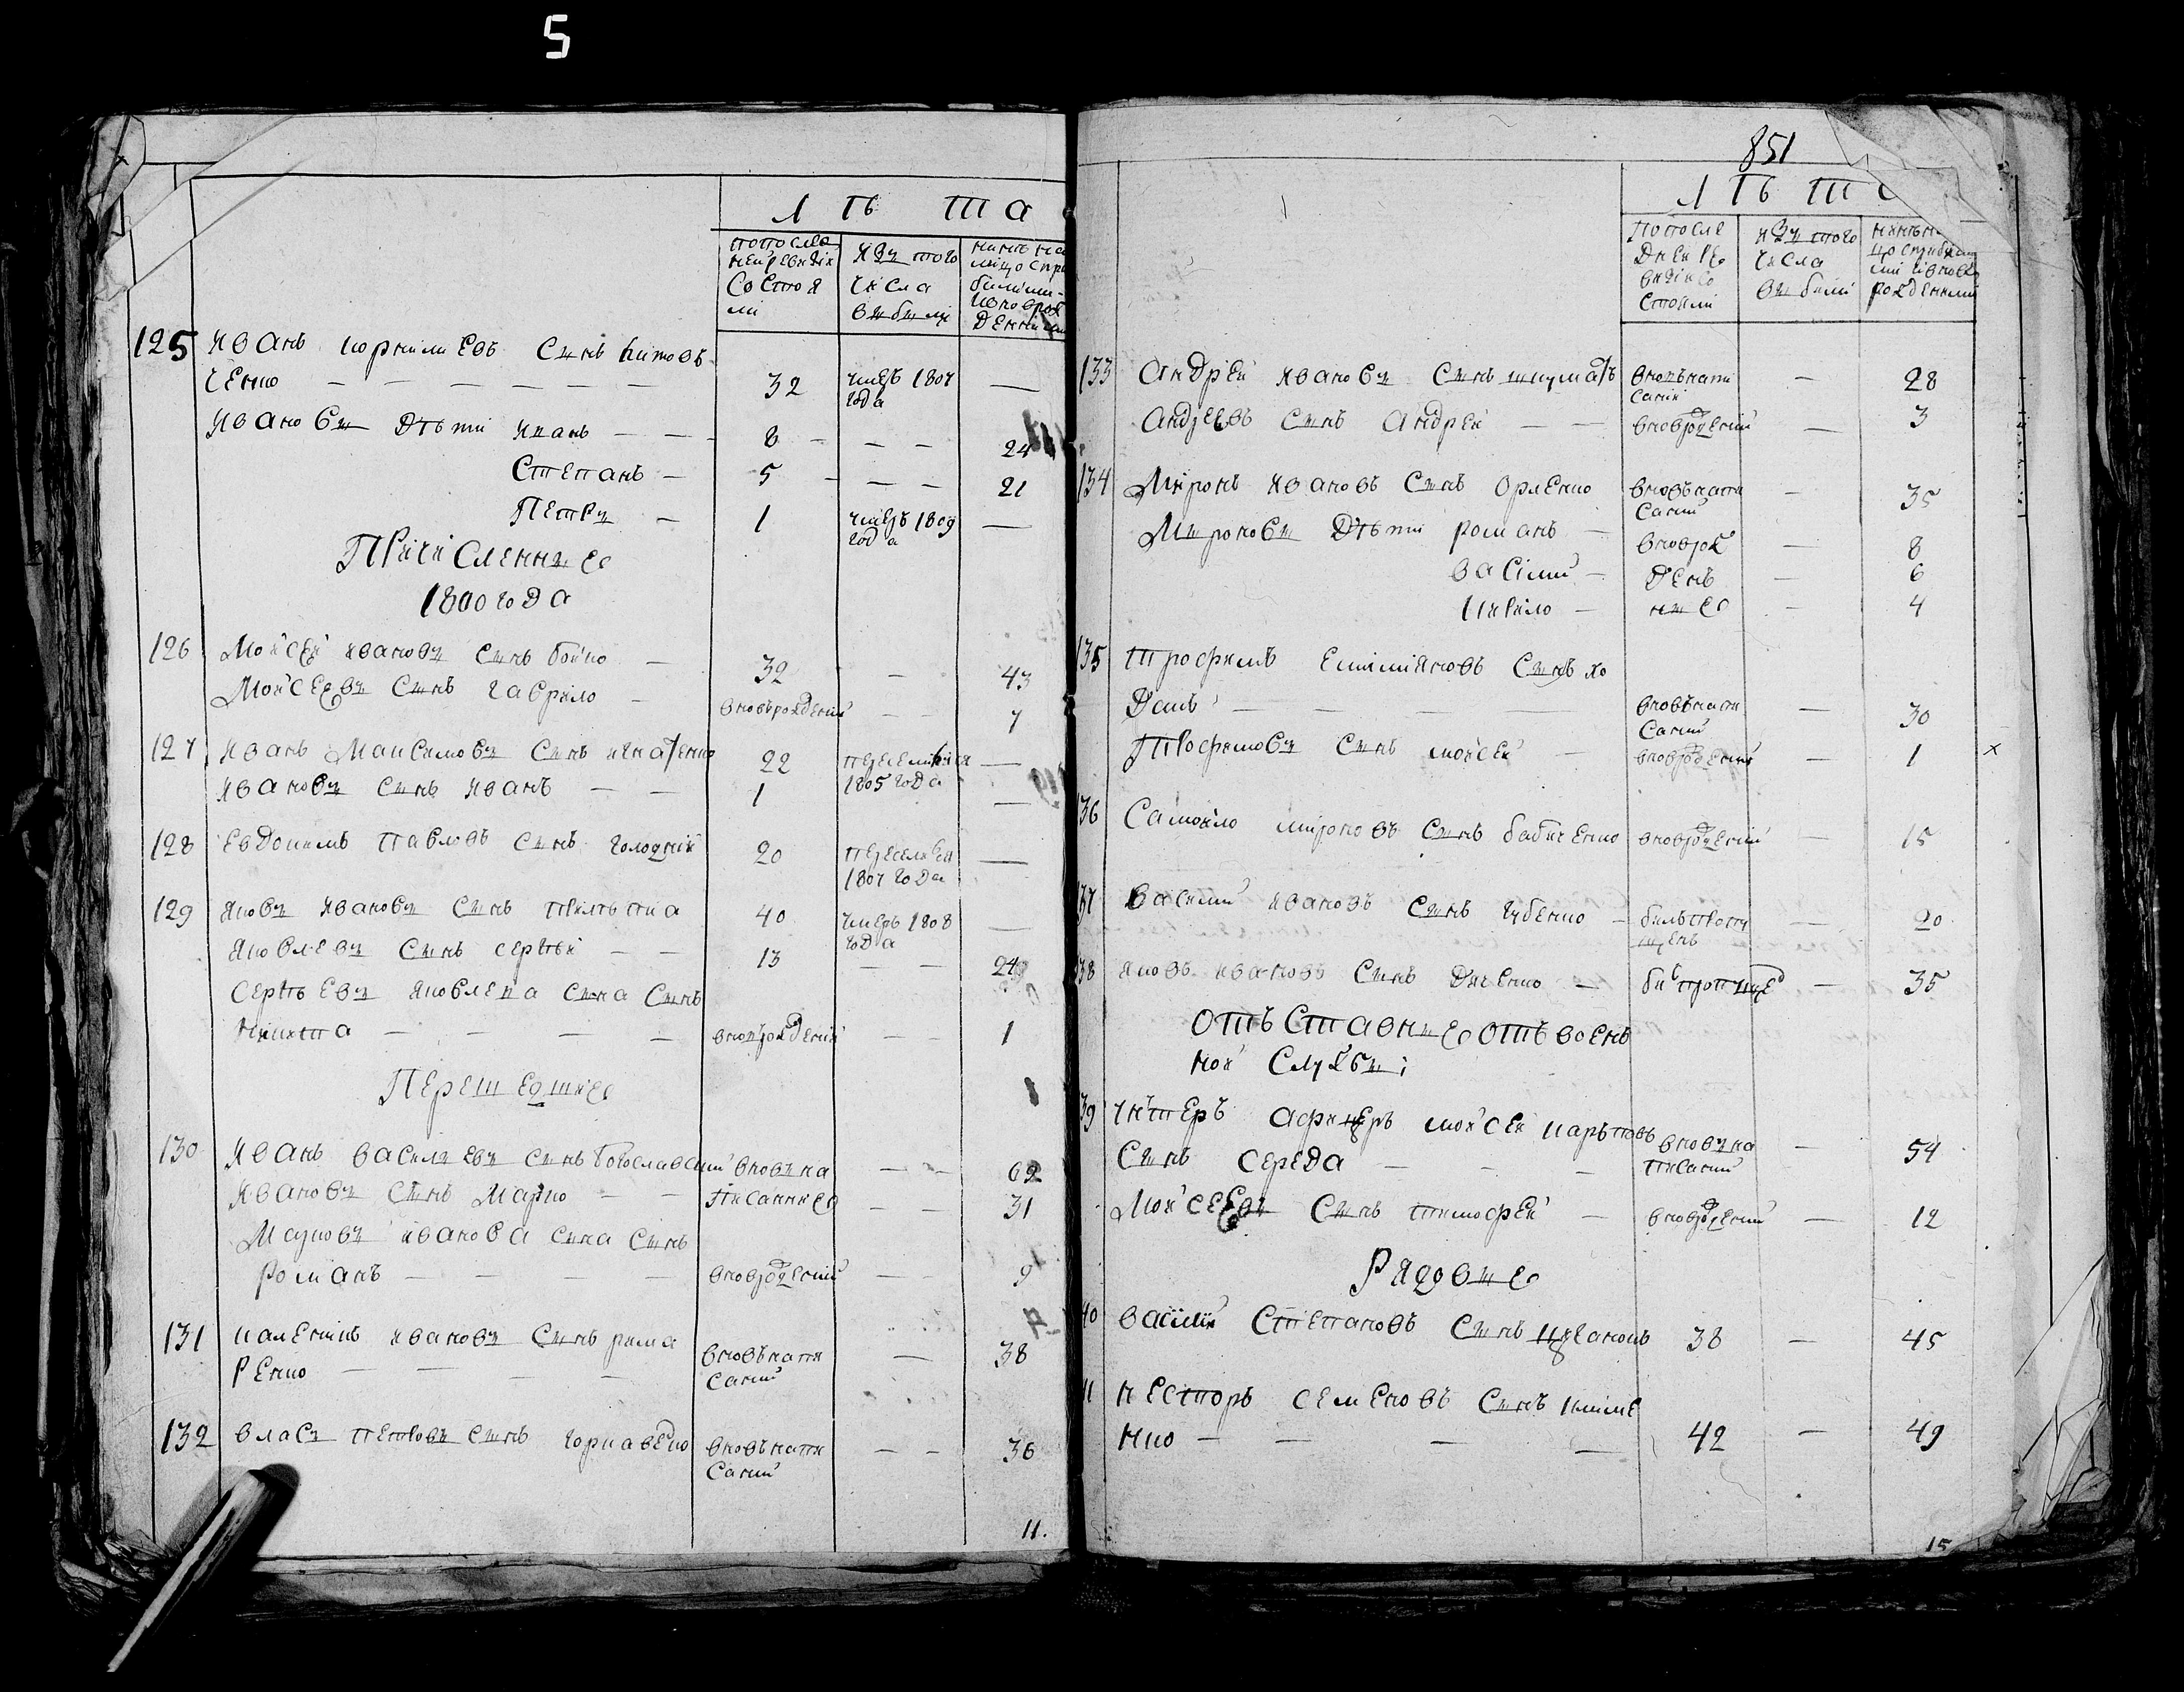 5
Л Ѣ Т А
попосле
ней ревизіи
состоя
ли
изъ того
числа
выбыли
125 иванъ корниліевъ сынъ китовъ
ченко — — — — — — 32 умеръ 1807 —
года
ивановы дѣти иванъ — — 8 — — — 24
степанъ — 5 — — — 21
петръ — 1 умеръ 1809 —
года
Причисленные
1800 года
126 Моисей ивановъ сынъ бойко — 32 — 43
Моисеевъ сынъ гаврило — вновьрожденній — — 7
127 иванъ Максимовъ сынъ игнатенко 22 переселился —
1805 года
ивановъ сынъ иванъ — — 1 —
128 евдокимъ павловъ сынъ голодній 20 переселився —
1807 года
129 яковъ ивановъ сынъ 40 умеръ 1808 —
года
яковлевъ сынъ сергѣй — — 13 — — 24
сергѣевъ яковлева сына сынъ
никита — — — — вновьрожденній — — 1
Перешедшие
130 иванъ васильевъ сынъ богославскій вновьна — — 62
ивановъ сынъ Марко — — писанные — — 31
Марковъ иванова сына сынъ
романъ — — — — вноврожденній — — 9
131 калениկъ ивановъ сынъ
ренко — — — — вновьнапи — 38
саній
132 власъ петровъ сынъ вновьнапи — — 36
саній
11.
851
Л Ѣ Т
попосле
дней ре
визіи со
стояли
изъ того
числа
выбыли
133 андрей ивановъ сынъ вновьнапи — 28
саній
андреевъ сынъ андрей — — вноврожденній — 3
134 Миронъ ивановъ сынъ орленко вновьнапи — 35
саній
Мироновы дѣти романъ — вноврож — 8
василій — ден — 6
кирило — ные — 4
135 трофимъ емиліяновъ сынъ хо
данъ — — — — вновьнапи — 30
саній
трофимовъ сынъ моисей — вноврожденній — 1 x
136 Самойло мироновъ сынъ бабиченко вноврожденній — 15
137 василий ивановъ сынъ губенко — билъпропу — 20
щенъ
138 яковъ ивановъ сынъ — билъпропуще — 35
отъставные отъ воен
ной службы:
39 унтеръ афицеръ моисей карповъ
сынъ середа — — — вновьна — 54
писаній
Моисеевъ сынъ тимофей — вноврожденній — 12
Рядовые
40 василій степановъ сынъ 38 — 45
41 несторъ семеновъ сынъ климе
нко — — — — 42 — 49
15